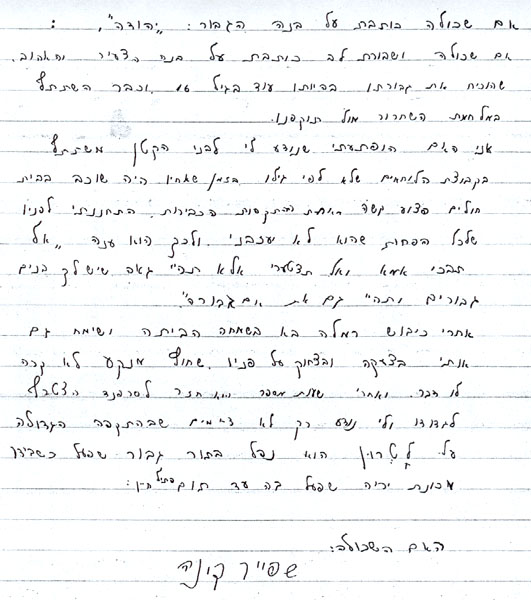 אם שכולה כותבת על בנה הגבור: "יהודה", :
אם שכולה ושבורת לב כותבת על בנה הצעיר והאהוב,
שהוכיח את גבורתו בהיותו עוד בגיל וכבר השתתף
במלחמת השחרור מול תוקפנו.
אני האם הופתעתי שנודע לי לבני הקטן משתתף
בקבוצת הלוחמים שלא לפי גילו. בזמן שאחיו היה שוכב בבית
חולים פצוע קשה מאחת ההתקפות הכבירות. התחננתי לפניו
שלכל הפחות שהוא לא יעזבני. ולכך הוא ענה "אל
תבכי אמא ואל תצטערי אלא תהיי גאה שיש לך בנים
גבורים ותהיי גם את אם גבורה".
אחרי כיבוש רמלה בא בשמחה הביתה ושימח גם
אותי בצעקה ובצחוק על פניו. שחוץ מנקע לא קרה
לו דבר. ואחרי שעות מספר הוא חזר לסרפנד הצטרף
לגדודו ולי נודע רק לא שבהתקפה הגדולה
על לטרון הוא נפל בתור גבור שפעל כשבידו
מכונת יריה שפעל בה עד תום פתיל חייו:
האם השכולה:
שפייר קינה